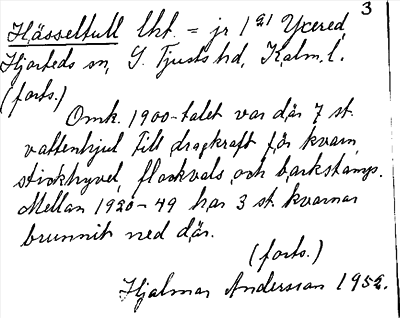 3
Hässelfull lht. = jr 1 21 Yxered,
Hjorteds sn, S. Tjusts hd, Kalm. l.
(forts.)
Omk. 1900-talet var där 7 st.
vattenhjul till dragkraft för kvarn,
stickhyvel, flackvals och barkstamp.
Mellan 1920-49 har 3 st. kvarnar
brunnit ned där.
(forts.)
Hjalmar Andersson 1952.